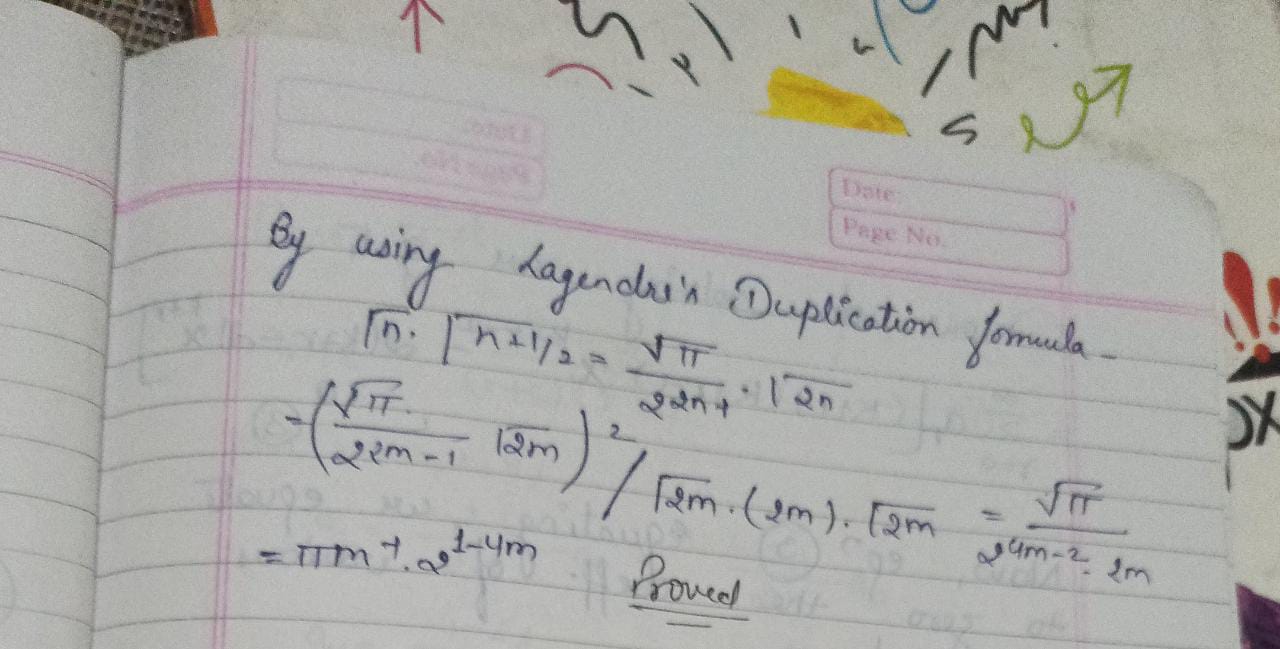 Date:
Page No.
By using Lagendre's Duplication formula -
Γn. Γn+1/2 = √π / 2^2n-1 . Γ2n
= (√π / 2^2m-1 Γ2m)^2 / Γ2m. (2m). Γ2m = √π / 2^4m-2. 2m
= πm^-1. 2^1-4m Proved